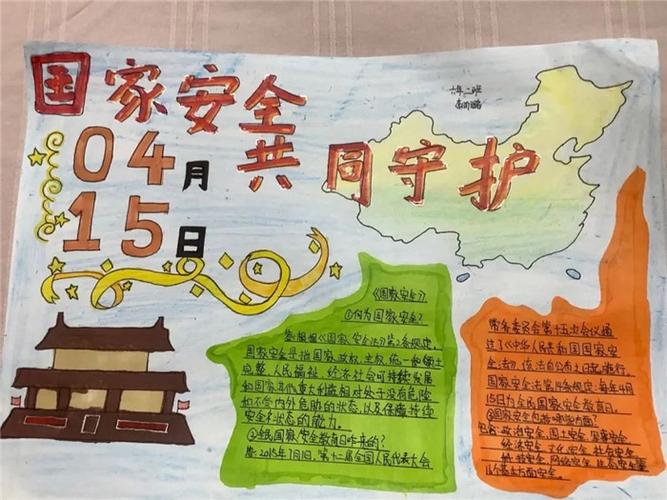 国家安全
共同守护
04月
15日
六年二班
《国家安全》
①何为国家安全?
答:根据《国家安全法》第2条规定,
国家安全是指国家政权、主权、统一和领土
完整、人民福祉、经济社会可持续发展
和国家其他重大利益相对处于没有危险
和不受内外危胁的状态,以及保障持续
安全状态的能力。
②全民国家安全教育日咋来的?
答:2015年7月1日,第十二届全国人民代表大会
常务委员会第十五次会议通
过了《中华人民共和国国家安
全法》,该法自公布之日起施行。
国家安全法第14条规定:每年4月
15日为全民国家安全教育日。
③国家安全包括哪些方面?
包含:政治安全、国土安全、军事安全
经济安全、文化安全、社会安全
网络安全、生态安全
16个基本方面安全。